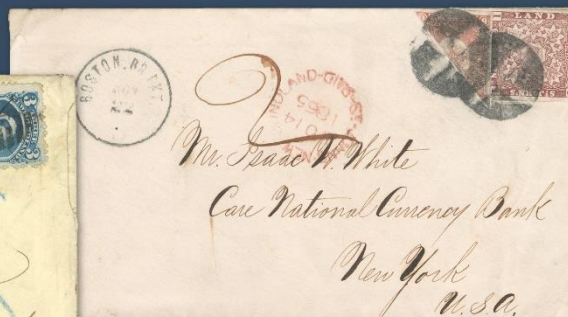 BOSTON. BR. PKT.
NOV
LAND
2
1865
Mr. Isaac W. White
Care National Currency Bank
New York
U.S.A.